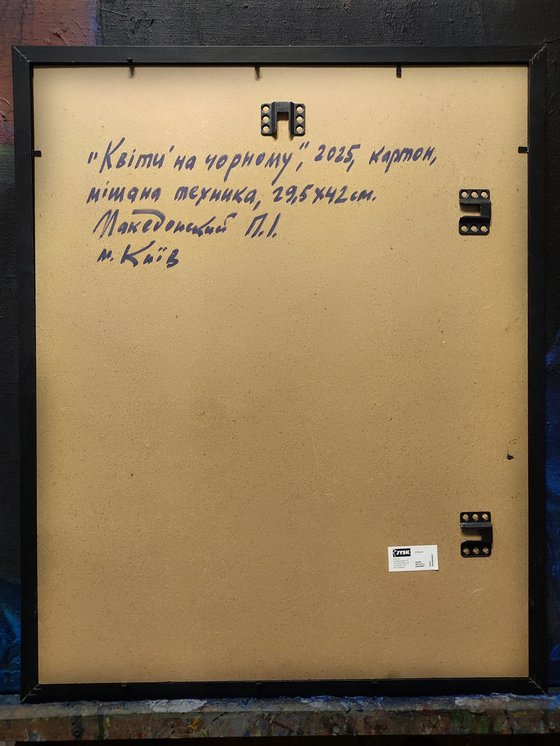 "Квіти на чорному", 2025, картон,
мішана техника, 29,5х42 см.
Македонский П.І.
м. Київ
JYSK